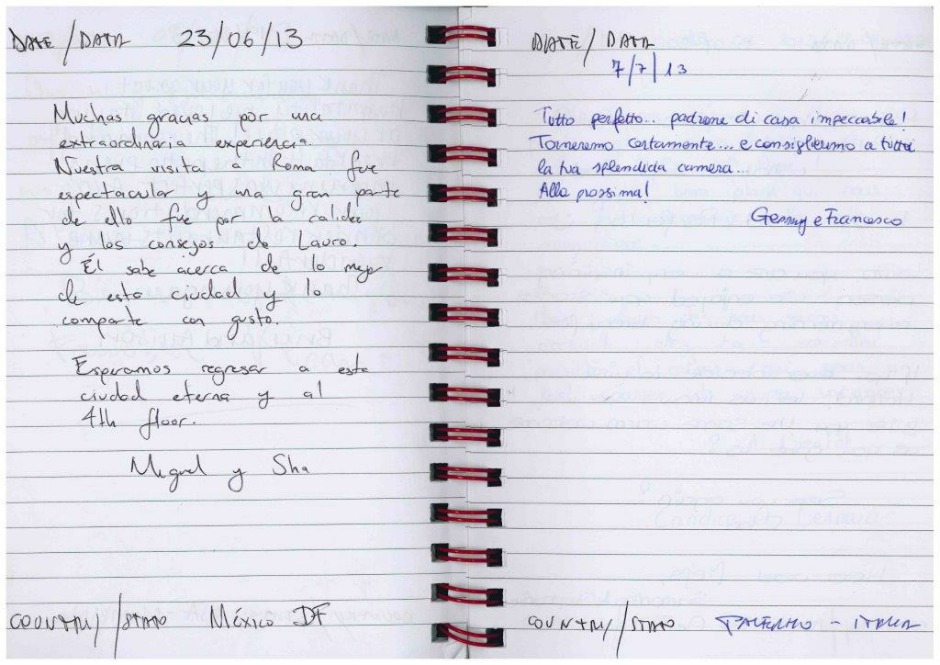 DATE / DATA 23/06/13
Muchas gracias por una
extraordinaria experiencia.
Nuestra visita a Roma fue
espectacular y una gran parte
de ello fue por la calidez
y los consejos de Lauro.
Él sabe acerca de lo mejor
de esta ciudad y lo
comparte con gusto.
Esperamos regresar a esta
ciudad eterna y al
4th floor.
Miguel y Sha
COUNTRY / STATO México DF
DATE / DATA
7/7/13
Tutto perfetto... padrone di casa impeccabile!
Torneremo certamente... e consiglieremo a tutti
la tua splendida camera...
Alla prossima!
Genny e Francesco
COUNTRY / STATO PALERMO - ITALIA